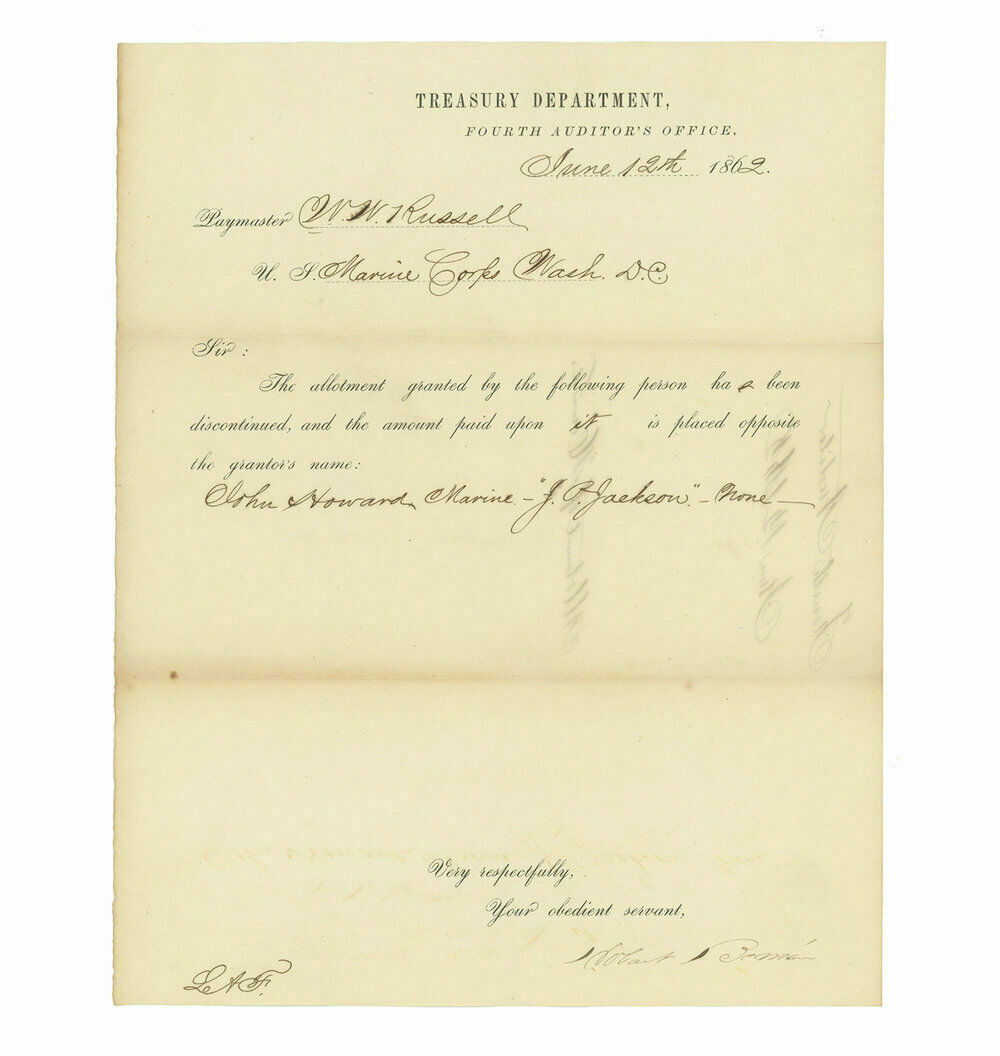 TREASURY DEPARTMENT,
FOURTH AUDITOR'S OFFICE,
June 12th 1862.
Paymaster W. W. Russell
U. S. Marine Corps Wash. D.C.
Sir :
The allotment granted by the following person has been
discontinued, and the amount paid upon it is placed opposite
the grantor's name:
John Howard, Marine – "J. P. Jackson," – None –
Very respectfully,
Your obedient servant,
L A F.